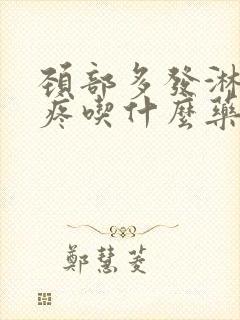 頚部多發淋
疼喫什麼藥
鄭慧菱